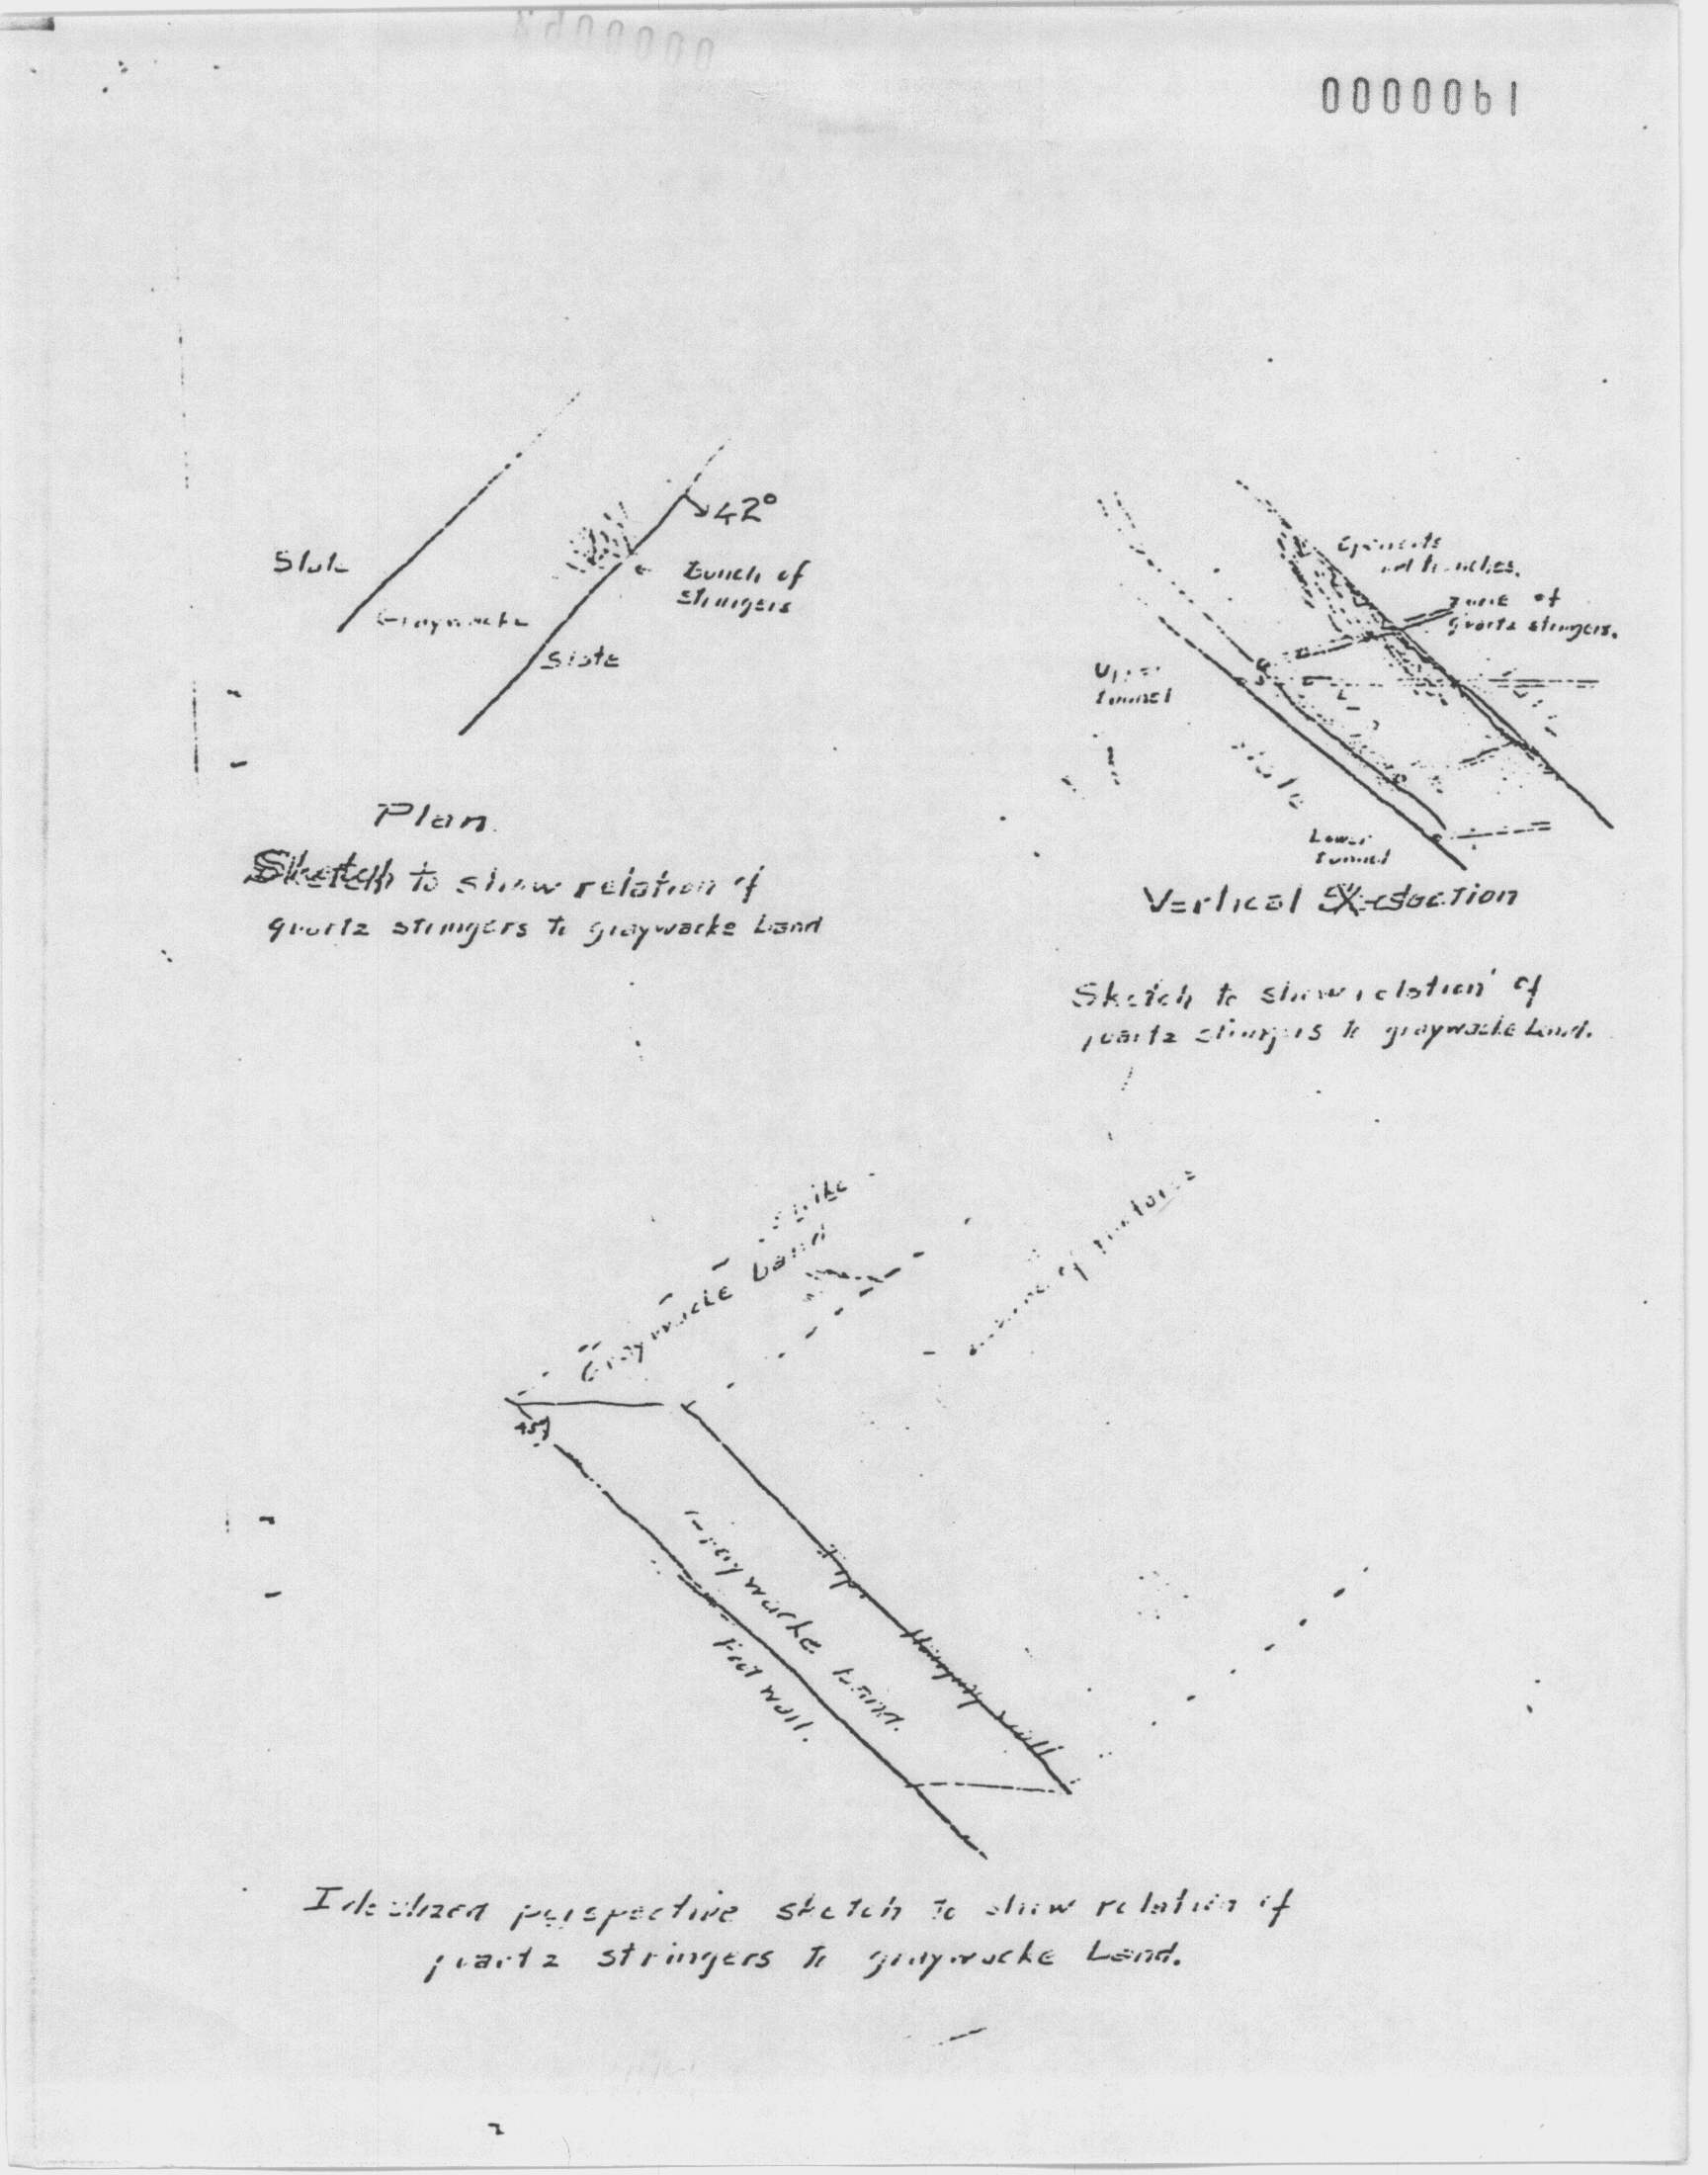 0000061
42°
Slate
Bunch of
stringers
Graywacke
Slate
Plan.
Sketch to show relation of
quartz stringers to graywacke band
zone of
quartz stringers.
Upper
tunnel
Slate
Lower
tunnel
Vertical X-section
Sketch to show relation of
quartz stringers to graywacke band.
Strike
Graywacke band
45°
Graywacke band.
Dip.
Hanging wall
Foot wall.
Idealized perspective sketch to show relation of
quartz stringers to graywacke band.